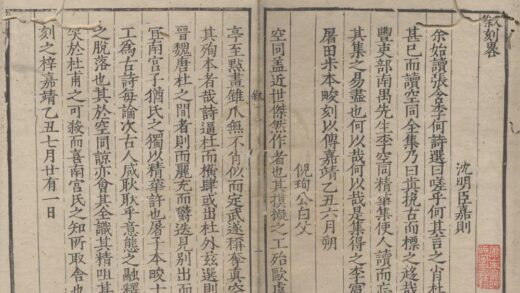 敘刻畧
沈明臣嘉則
余始讀張舍李何詩選曰嗟乎何其言之肖杜
甚巳而讀空同全集乃曰眞古而標之哉
豐東部南禺先生李空同精華集使人讀而忘
其集之易盡也何以哉何以哉是集得之李富
屠田未本畯刻以傳嘉靖乙丑六月朔
倪珣公白父
空同盖近世傑然作者也其摸擬之工殆歐虞
敘
亭至點畫雖爪無不肖似而定武遂稱奪真空
其殉本者哉詩逼杜而橫肆或出杜外兹選則
晉魏唐杜之間者則而麗充而鬱迭見别出而
宜南宫子猶氏之獨以精華許也屠子本畯十
工為古詩每論次古人咸耿耿乎意態之融釋
之脫落也其於空同諒亦會其全識其精咀其
笑於杜甫之可殺而喜南宫氏之知所取舍也
刻之梓嘉靖乙丑七月廿有一日